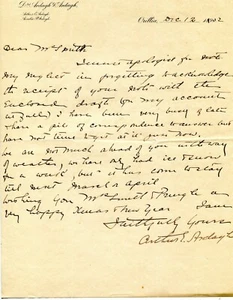 Drs. Ardagh & Ardagh,
Orillia, Dec 12 1902
Dear Mr Smith
I must apologise for
my neglect in forgetting to acknowledge
the receipt of your note with the
enclosed draft for my account
I have been very busy of late
have a pile of correspondence to answer but
have not time to get at it just now.
We are not much ahead of you in the way
of weather, we have only had ice & snow
for a week, but it has come to stay
until next March or April
Wishing you Mrs Smith & a
very happy Xmas & New Year I am
Faithfully Yours
Arthur E. Ardagh